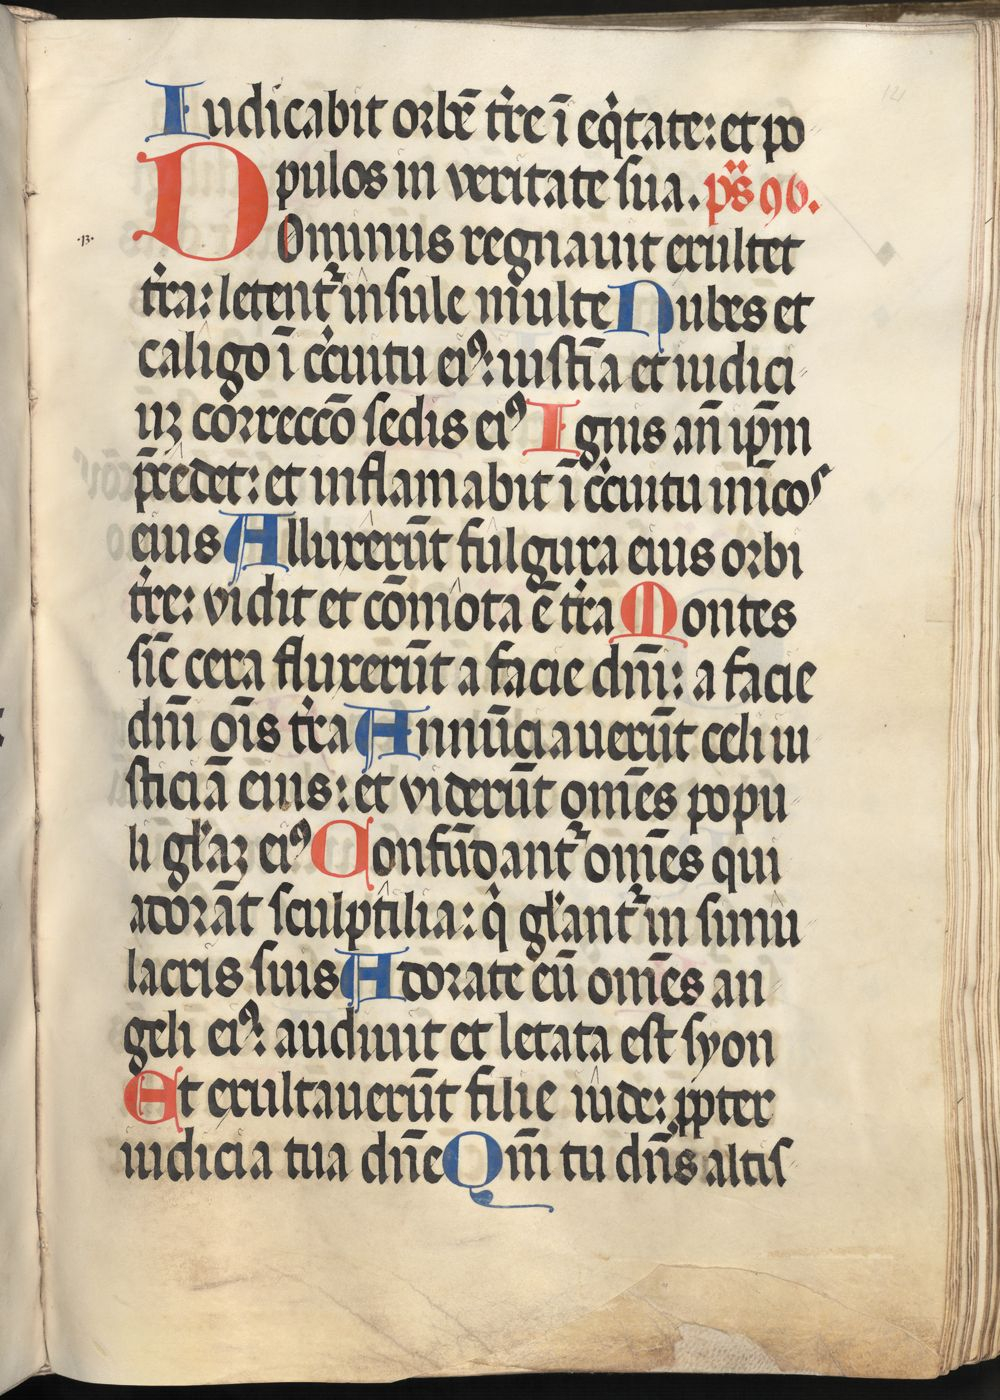 Iudicabit orbē tr̄e ī eq̇tate: et po
pulos in veritate sua. ps̄ 96.
Dominus regnauit exultet
.13.
tr̄a: letent᷑ insule multe Nubes et
caligo ī cc̄uitu eiꝰ: iusti̅a et iudici
uʒ correccō sedis eiꝰ Ignis an̄ ip̄m
p̄cedet: et inflammabit ī cc̄uitu inīcos
eius Alluxerūt fulgura eius orbi
tr̄e: vidit et cōmota ē tr̄a Montes
sic̄ cera fluxerūt a facie dn̄i: a facie
dn̄i om̄is tr̄a Annūciauerūt celi iu
sticiā eius: et viderūt omēs popu
li gl̄iaʒ eiꝰ Confūdant᷑ omēs qui
adorāt sculptilia: q̇ gl̄iant᷑ in simu
lacris suis Adorate eū omēs an
geli eiꝰ: audiuit et letata est syon
Et exultauerūt filie iude: ꝓpter
iudicia tua dn̄e Qm̄ tu dn̄s altis